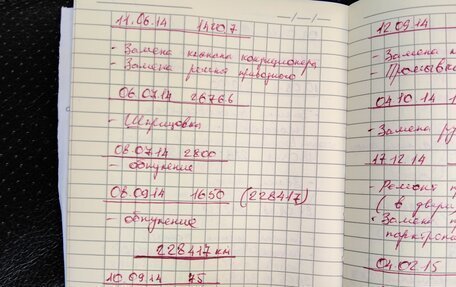 11.06.14 14207
- Замена клапана кондиционера
- Замена ремней приводного
06.07.14 26766
- Шприцовка
08.07.14 2800
- обнуление
06.09.14 1650 (228417)
- обнуление
228417 км
10.09.14 75
12.09.14
- Замена
- Промывка
04.10.14
- Замена
17.12.14
- Ремонт
(в двери
- Замена
04.02.15